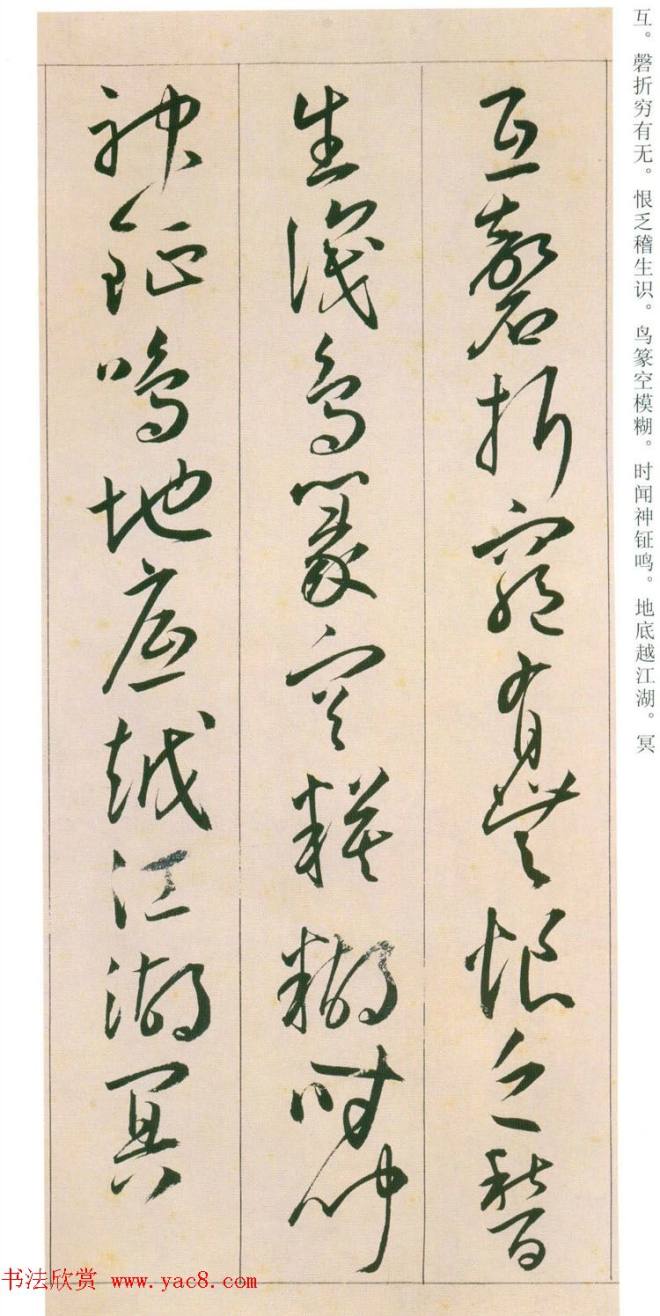 互。磬折穷有无。恨乏稽生识。鸟篆空模糊。时闻神钲鸣。地底越江湖。冥
互磬折窮有無恨乏稽
生識鳥篆空糢糊時聞
神鉦鳴地底越江湖冥
书法欣赏 www.yac8.com